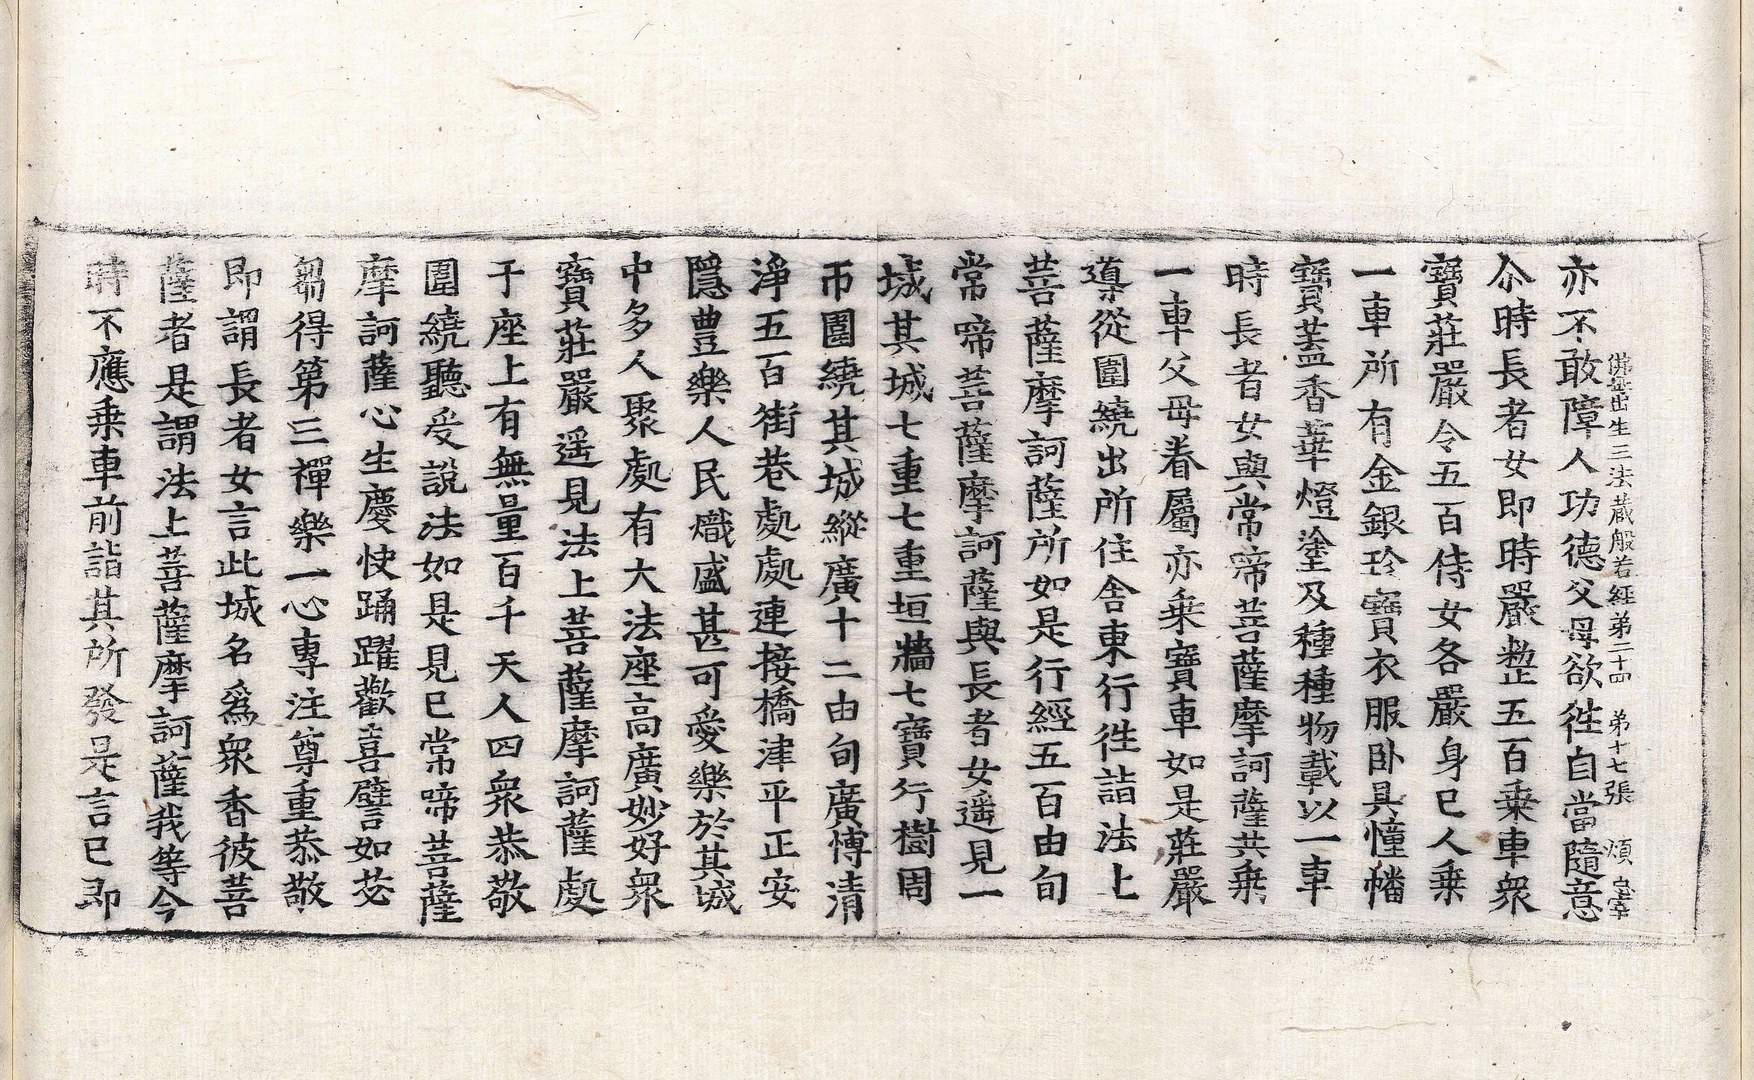 佛母出生三法蔵般若經第二十四　第十七張　煩　皇宰
亦不敢障人功德父母欲徃自當隨意
尒時長者女即時嚴整五百乗車衆
寶莊嚴令五百侍女各嚴身已人乗
一車所有金銀珍寶衣服卧具憧幡
寶蓋香華燈塗及種種物載以一車
時長者女與常啼菩薩摩訶薩共乗
一車父母眷屬亦乗寶車如是莊嚴
導從圍繞出所住舎東行徃詣法上
菩薩摩訶薩所如是行經五百由旬
常啼菩薩摩訶薩與長者女遥見一
城其城七重七重垣牆七寶行樹周
帀圍繞其城縱廣十二由旬廣愽清
淨五百街巷處處連接橋津平正安
隱豊樂人民熾盛甚可愛樂於其城
中多人聚處有大法座高廣妙好衆
寶莊嚴遥見法上菩薩摩訶薩處
于座上有無量百千天人四衆恭敬
圍繞聽受說法如是見已常啼菩薩
摩訶薩心生慶快踊躍歡喜譬如苾
芻得第三禪樂一心專注尊重恭敬
即謂長者女言此城名爲衆香彼菩
薩者是謂法上菩薩摩訶薩我等今
時不應乗車前詣其所發是言已即